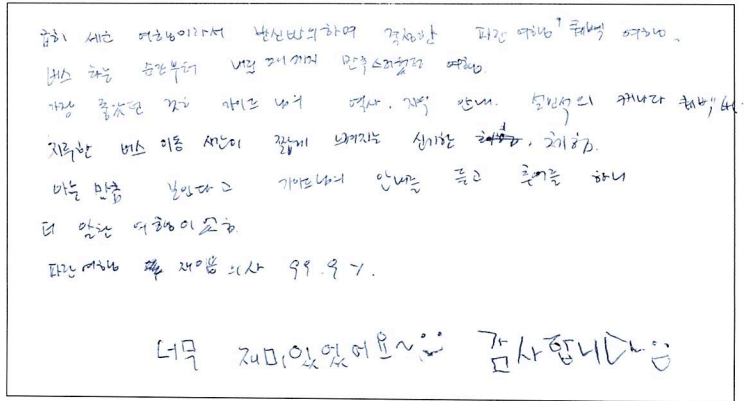 급히 세운 여행이라서 반신반의하며 걱정한 파란여행 퀘벡 여행.
버스 타는 순간부터 내릴 때까지 만족스러웠던 여행.
가장 좋았던 것은 가이드님의 역사, 지역 안내. 설민석의 캐나다 퀘벡
지루한 버스 이동 시간이 짧게 느껴지는 신기한 체험.
아는 만큼 보인다고 가이드님의 안내를 듣고 투어를 하니
더 알찬 여행이었음.
파란여행 재이용 의사 99.9%.
너무 재미있었어요~ 감사합니다